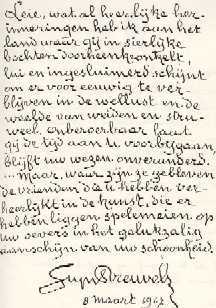 Leie, wat al heerlijke her-
inneringen heb ik aan het
land waar gij in sierlijke
bochten doorheenkronkelt,
lui en ingesluimerd schijnt
om er voor eeuwig te ver-
blijven in de wellust en de
weelde van weiden en stru-
weel. onberoerbaar laat
gij de tijd aan u voorbijgaan,
blijft uw wezen onveranderd.
... Maar, waar zijn ze gebleven
de vrienden die u hebben ver-
heerlijkt in de kunst, die er
hebben liggen spelemeien op
uw oevers in het gelukzalig
aanschijn van uw schoonheid.
Stijn Streuvels
8 maart 1947